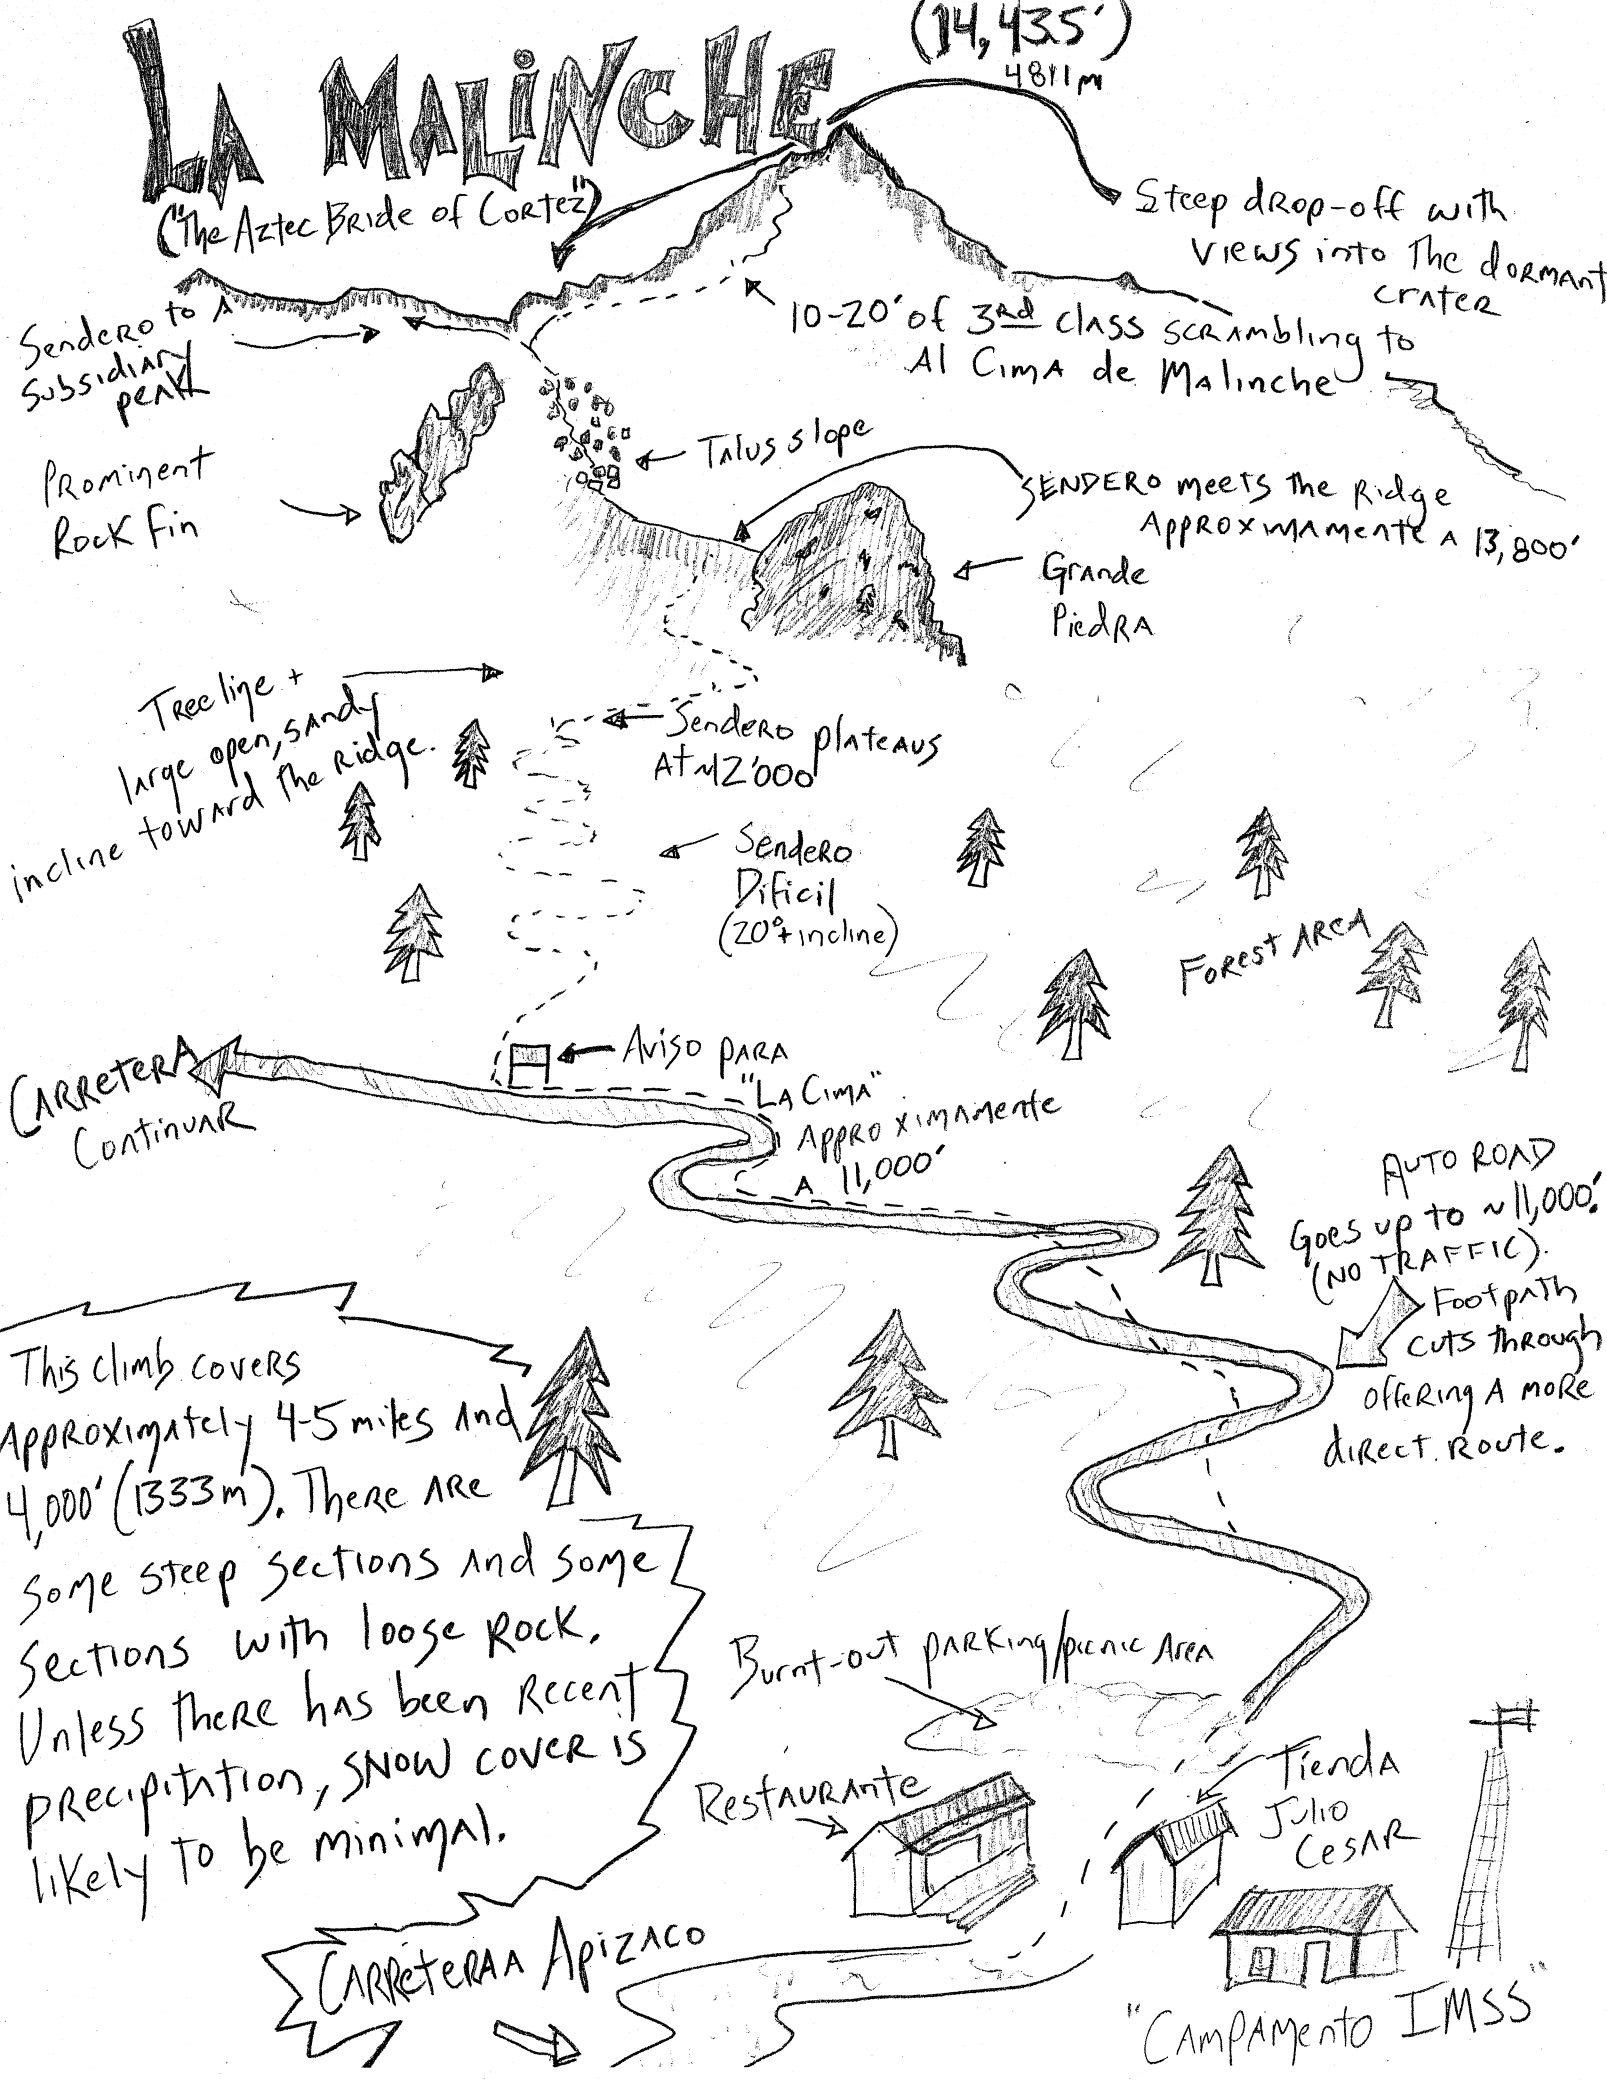 LA MALINCHE
(14,435')
4811m
("The Aztec Bride of Cortez")
Steep drop-off with
views into the dormant
crater
10-20' of 3rd class scrambling to
Al Cima de Malinche
Sendero to A
subsidiary
peak
Prominent
Rock Fin
Talus slope
SENDERO meets the Ridge
Approximamente A 13,800'
Grande
Piedra
Treeline +
large open, sandy
incline toward the Ridge.
Sendero plateaus
At ~12'000
Sendero
Dificil
(20°+ incline)
Forest Area
Carretera
Continuar
Aviso para
"La Cima"
Approximamente
A 11,000'
Auto Road
Goes up to ~11,000'.
(NO TRAFFIC).
Footpath
cuts through
offering A more
direct route.
This climb covers
approximately 4-5 miles and
4,000' (1333m). There are
some steep sections and some
sections with loose rock.
Unless there has been recent
precipitation, snow cover is
likely to be minimal.
Burnt-out parking/picnic Area
Restaurante
Tienda
Julio
Cesar
Carretera A Apizaco
"Campamento IMSS"